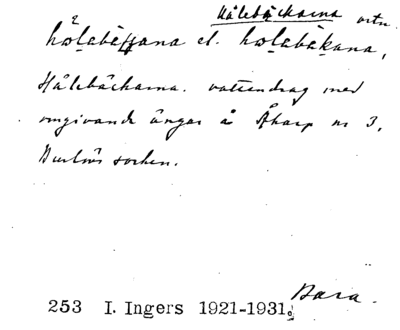 Hålebäckarna ortn.
hωlabäƒƒana el. hωlabäkana,
Hålebäckarna. vattendrag med
omgivande ängar å Åkarp nr 3,
Burlövs socken.
Bara.
253 I. Ingers 1921-1931.